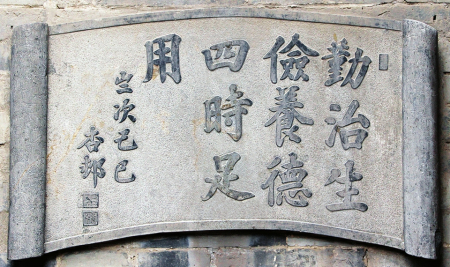 勤治生
儉養德
四時足
用
次巳
杏邨